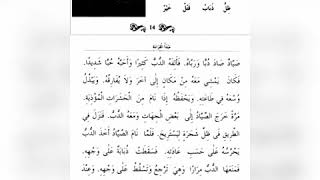 ظِلٌّ ذُبَابٌ قَتَلَ خَيْرٌ
14
صَيَّادٌ صَادَ دُبًّا وَرَبَّاهُ. فَأَلِفَهُ الدُّبُّ كَثِيرًا وَأَحَبَّهُ حُبًّا شَدِيدًا.
فَكَانَ يَمْشِي مَعَهُ مِنْ مَكَانٍ إِلَى آخَرَ وَلَا يُفَارِقُهُ. وَيَبْذُلُ
وُسْعَهُ فِي طَاعَتِهِ. وَيَحْفَظُهُ إِذَا نَامَ مِنَ الْحَشَرَاتِ الْمُؤْذِيَةِ.
مَرَّةً خَرَجَ الصَّيَّادُ إِلَى بَعْضِ الْجِهَاتِ وَمَعَهُ الدُّبُّ. فَنَزَلَ فِي
الطَّرِيقِ فِي ظِلِّ شَجَرَةٍ لِيَسْتَرِيحَ. فَلَمَّا نَامَ الصَّيَّادُ أَخَذَ الدُّبُّ
يَحْرُسُهُ عَلَى حَسَبِ عَادَتِهِ. فَسَقَطَتْ ذُبَابَةٌ عَلَى وَجْهِهِ.
فَمَنَعَهَا الدُّبُّ مِرَارًا وَهِيَ تَرْجِعُ وَتَسْقُطُ عَلَى وَجْهِهِ. وَعِنْدَ